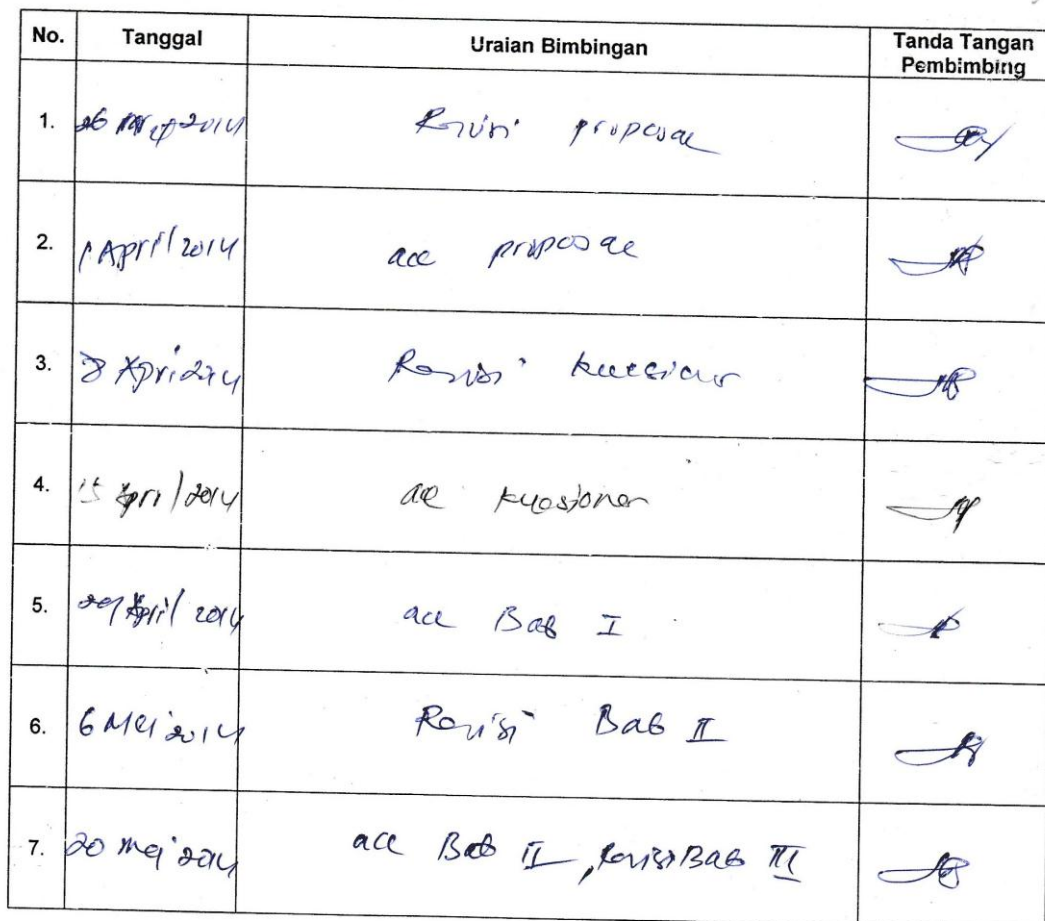 No. Tanggal Uraian Bimbingan Tanda Tangan
Pembimbing
1. 26 Maret 2014 Revisi proposal
2. 1 April 2014 acc proposal
3. 8 April 2014 Revisi kuesioner
4. 15 April 2014 acc kuesioner
5. 29 April 2014 acc Bab I
6. 6 Mei 2014 Revisi Bab II
7. 20 Mei 2014 acc Bab II, Revisi Bab III